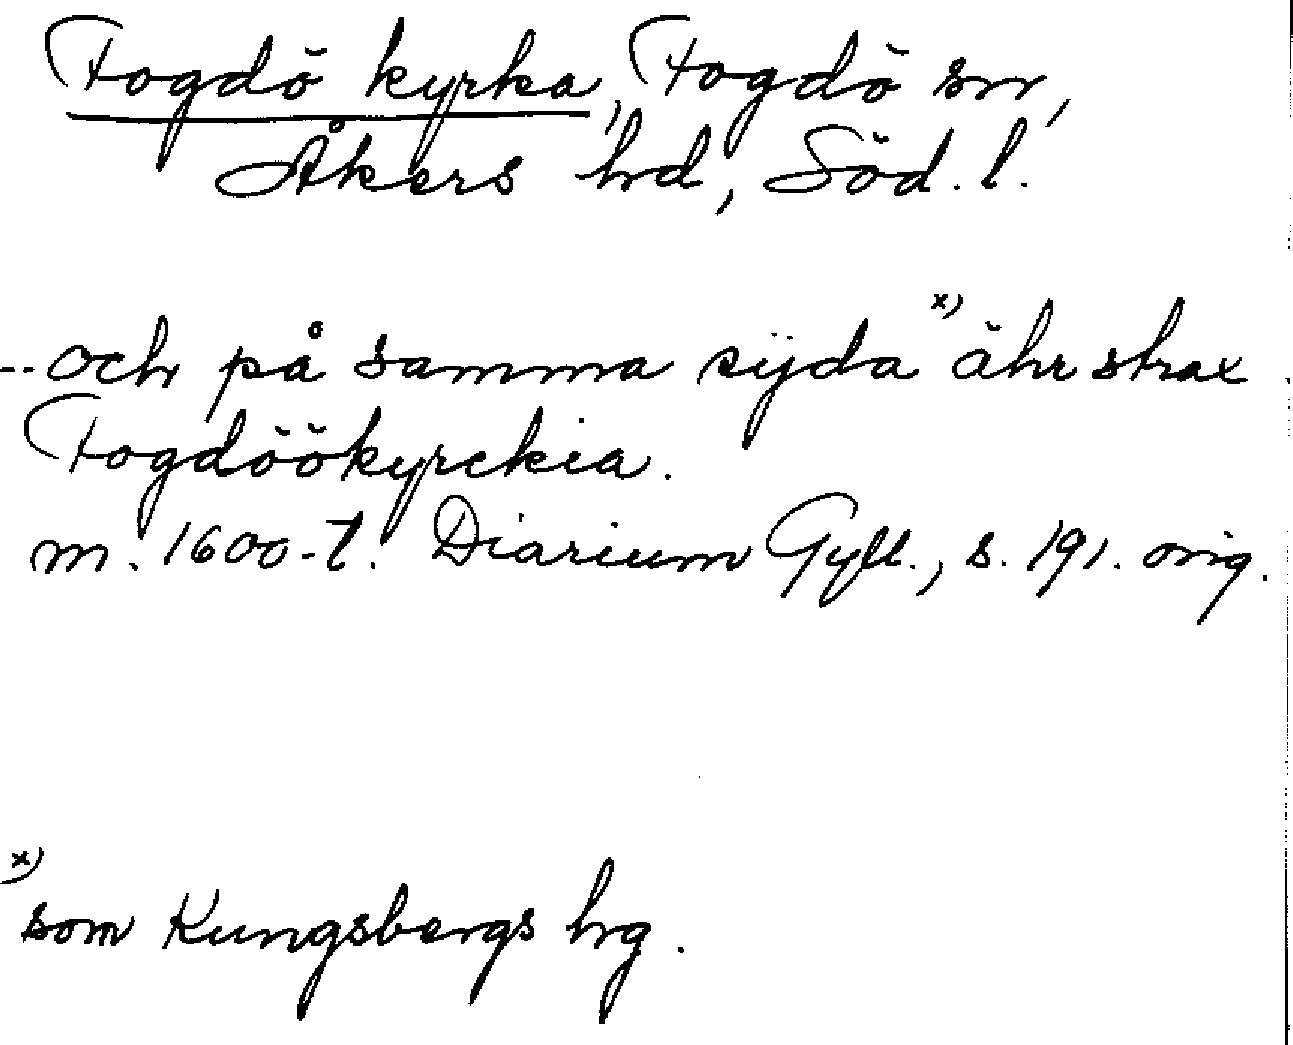 Fogdö kyrka, Fogdö sn,
Åkers hd, Söd. l.
--och på samma sijda x) ähr strax
Fogdöökyrckia.
m. 1600-t. Diarium Gyll., s. 191. orig.
x)
som Kungsbergs hrg.